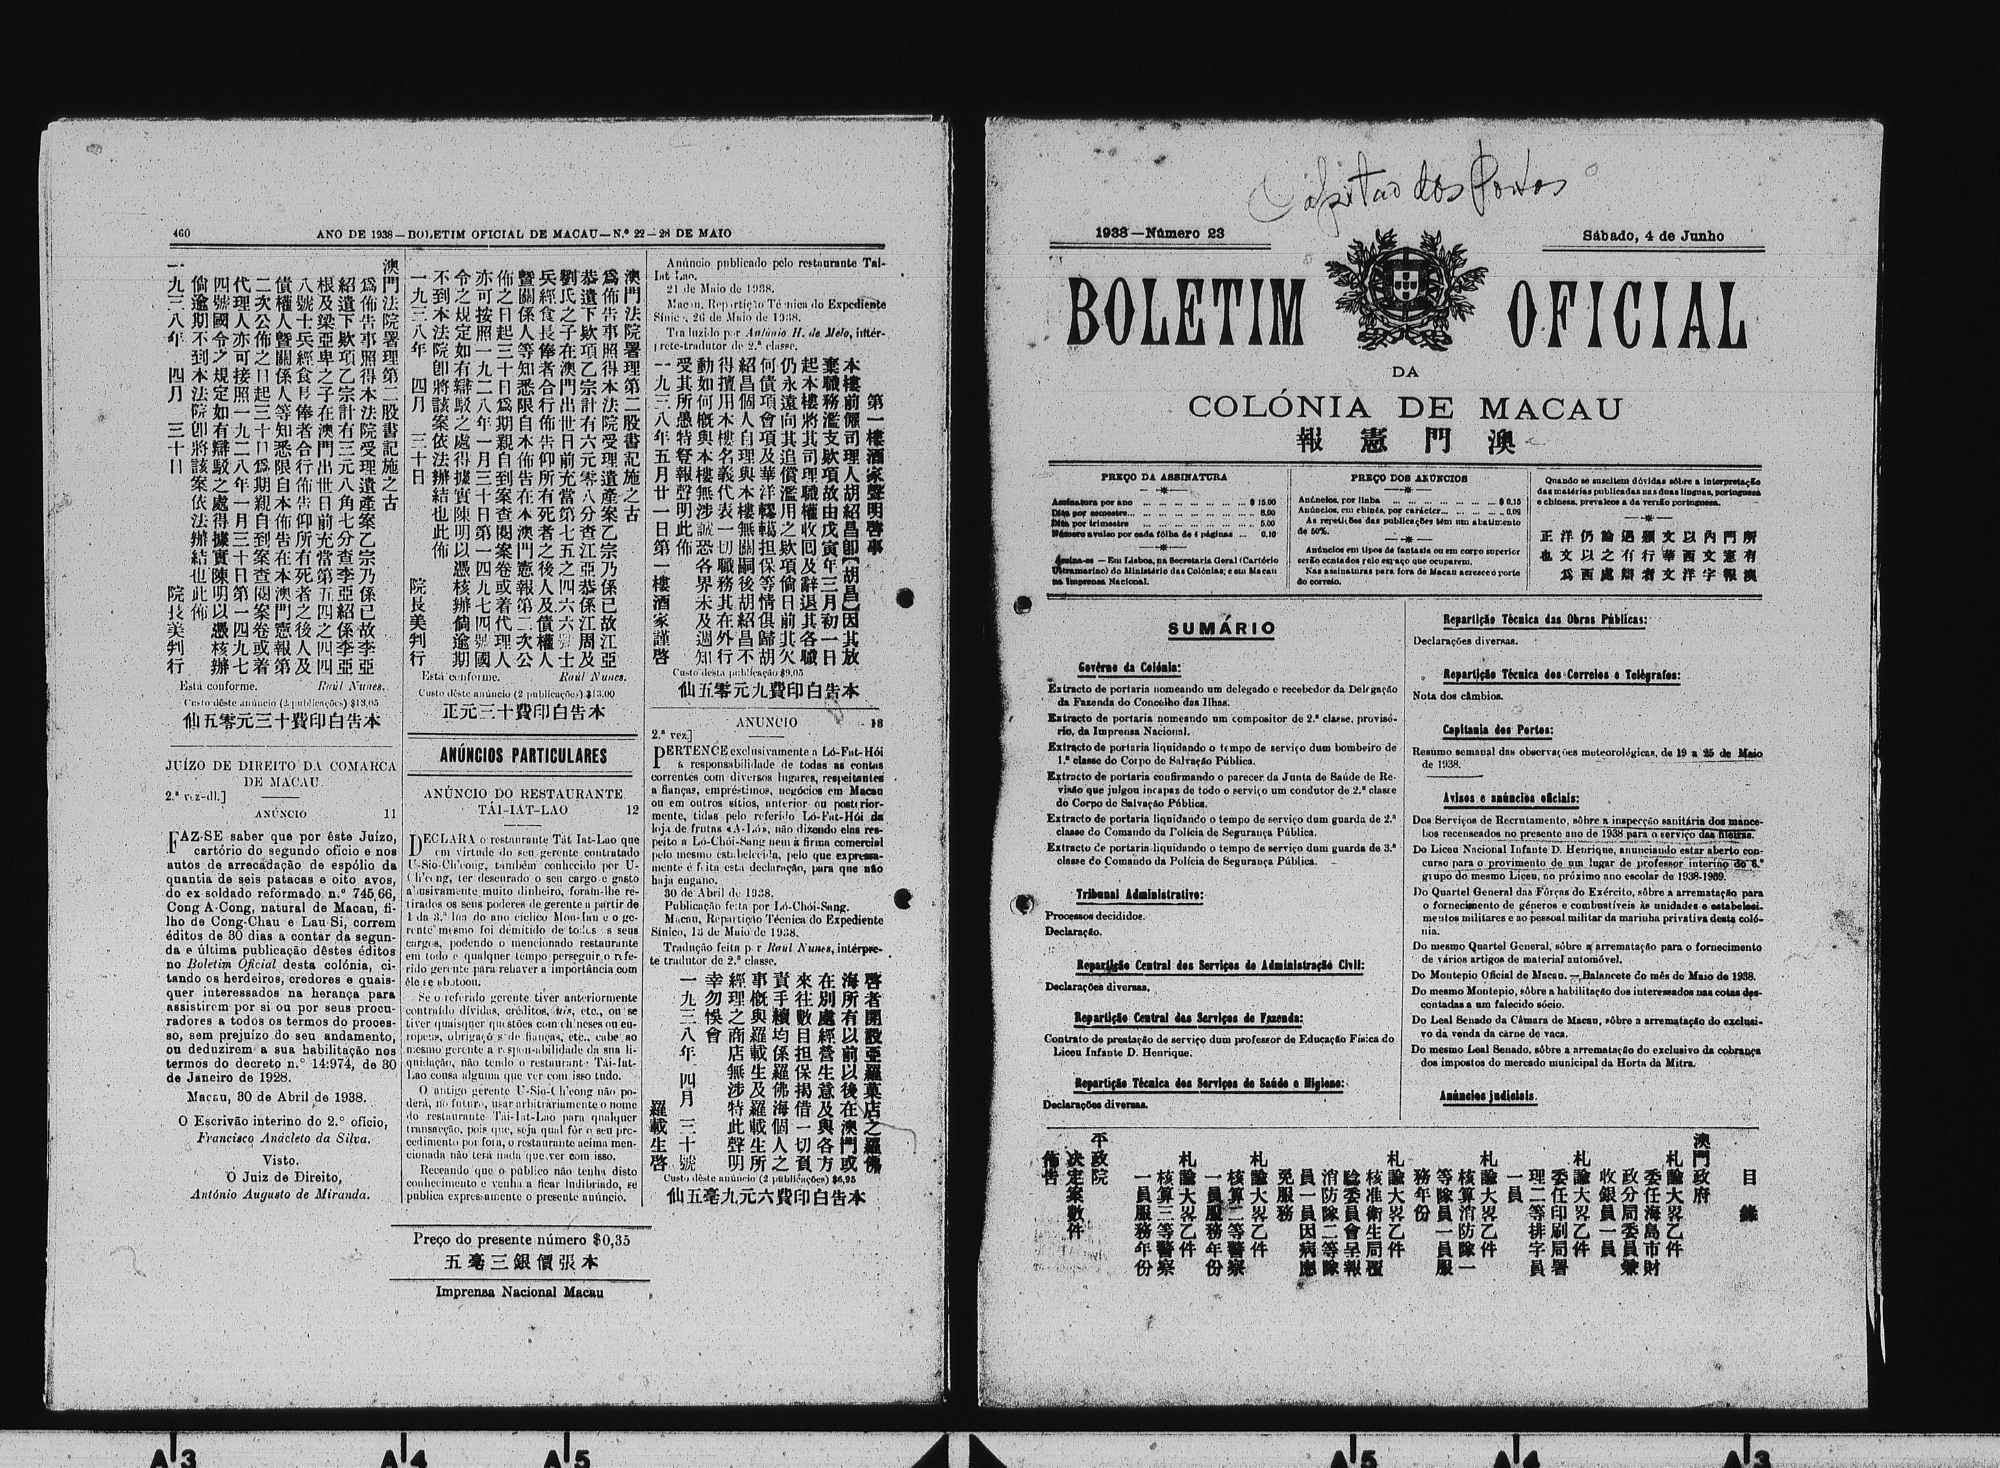 460 ANO DE 1938—BOLETIM OFICIAL DE MACAU—N.º 22—28 DE MAIO
澳門法院署理第二股書記施之古
爲佈告事照得本法院受理遺產案乙宗乃係已故李亞
紹遺下欵項乙宗計有三元八角七分查李亞紹係李亞
根及梁亞卑之子在澳門出世日前充當第五四之四四
八號士兵經食長俸者合行佈告仰所有死者之後人及
債權人曁關係人等知悉限自本佈告在本澳門憲報第
二次公佈之日起三十日爲期親自到案查閱案卷或着
代理人亦可接照一九二八年一月三十日第一四九七
四號國令之規定如有辯駁之處得據實陳明以憑核辦
倘逾期不到本法院卽將該案依法辦結也此佈
一九三八年 四月 三十日 院長美判行
Está conforme. Raúl Nunes.
Custo dêste anúncio (2 publicações) $13,05
本告白印費十三元零五仙
JUÍZO DE DIREITO DA COMARCA
DE MACAU
2.ª vez-dl.]
ANÚNCIO 11
FAZ-SE saber que por êste Juízo,
cartório do segundo ofício e nos
autos de arrecadação de espólio da
quantia de seis patacas e oito avos,
do ex-soldado reformado n.º 745/66,
Cong A-Cong, natural de Macau, fi-
lho de Cong-Chau e Lau Si, correm
éditos de 30 dias a contar da segun-
da e última publicação dêstes éditos
no Boletim Oficial desta colónia, ci-
tando os herdeiros, credores e quais-
quer interessados na herança para
assistirem por si ou por seus procu-
radores a todos os termos do proces-
so, sem prejuízo do seu andamento,
ou deduzirem a sua habilitação nos
termos do decreto n.º 14:974, de 30
de Janeiro de 1928.
Macau, 30 de Abril de 1938.
O Escrivão interino do 2.º ofício,
Francisco Anacleto da Silva.
Visto.
O Juiz de Direito,
António Augusto de Miranda.
澳門法院署理第二股書記施之古
爲佈告事照得本法院受理遺產案乙宗乃係已故江亞
恭遺下欵項乙宗計有六元零八分查江亞恭係江周及
劉氏之子在澳門出世日前充當第七五之四六六號士
兵經食長俸者合行佈告仰所有死者之後人及債權人
曁關係人等知悉限自本佈告在本澳門憲報第二次公
佈之日起三十日爲期親自到案查閱案卷或着代理人
亦可按照一九二八年一月三十日第一四九七四號國
令之規定如有辯駁之處得據實陳明以憑核辦倘逾期
不到本法院卽將該案依法辦結也此佈
一九三八年 四月 三十日 院長美判行
Está conforme. Raúl Nunes.
Custo dêste anúncio (2 publicações) $13,00
本告白印費十三元正
ANÚNCIOS PARTICULARES
ANÚNCIO DO RESTAURANTE
TÁI-IAT-LAO 12
DECLARA o restaurante Tát Iat-Lao que
em virtude do seu gerente contratado
U-Sio-Ch'eong, também conhecido por U-
Ch'eong, ter descurado o seu cargo e gasto
abusivamente muito dinheiro, foram-lhe re-
tirados os seus poderes de gerente a partir de
1 da 3.ª lua do ano cíclico Mou-Ian e o ge-
rente mesmo foi demitido de todos os seus
cargos, podendo o mencionado restaurante
em todo e qualquer tempo perseguir o refe-
rido gerente para rehaver a importância com
êle se abotoou.
Se o referido gerente tiver anteriormente
contraído dívidas, créditos, etc., ou se
tiver quaisquer questões com chineses ou eu-
ropeus, obrigações de fianças, etc., cabe ao
mesmo gerente a responsabilidade da sua li-
quidação, não tendo o restaurante Tái-Iat-
Lao cousa alguma que ver com isso tudo.
O antigo gerente U-Sio-Ch'eong não po-
derá, no futuro, usar arbitràriamente o nome
do restaurante Tái-Iat-Lao para qualquer
transacção, pois que, seja qual fôr o seu pro-
cedimento por fora, o restaurante acima men-
cionado não terá nada que ver com isso.
Receando que o público não tenha disto
conhecimento e venha a ficar ludibriado, se
publica expressamente o presente anúncio.
Anúncio publicado pelo restaurante Tai-
Iat Lao.
21 de Maio de 1938.
Macau, Repartição Técnica do Expediente
Sínico, 26 de Maio de 1938.
Traduzido por António H. de Melo, intér-
prete-tradutor de 2.ª classe.
第一樓酒家聲明啓事
本樓前僱司理人胡紹昌卽【胡昌】因其放
棄職務濫支欵項故由戊寅年三月初一日
起本樓將其司理職權收回及辭退其各職
仍永遠向其追償濫用之欵項倘日前其欠
何債項會項及華洋轇轕担保等情俱歸胡
紹昌個人自理與本樓無關嗣後胡紹昌不
得擅用本樓名義代表一切職務其在外行
動如何槪與本樓無涉誠恐各界未及週知
受其所愚特登報聲明此佈
一九三八年五月廿一日第一樓酒家謹啓
Custo desta publicação $9,05
本告白印費九元零五仙
ANUNCIO 18
2.ª vez]
PERTENCE exclusivamente a Ló-Fat-Hói
a responsabilidade de todas as contas
correntes com diversos lugares, respeitantes
a fianças, empréstimos, negócios em Macau
ou em outros sítios, anterior ou posterior-
mente, tidas pelo referido Ló-Fat-Hói da
loja de frutas «A-Ló», não dizendo elas res-
peito a Ló-Chói-Sang nem à firma comercial
pelo mesmo estabelecida, pelo que expressa-
mente é feita esta declaração, para que não
haja engano.
30 de Abril de 1938.
Publicação feita por Ló-Chói-Sang.
Macau, Repartição Técnica do Expediente
Sínico, 13 de Maio de 1938.
Tradução feita por Raúl Nunes, intérpre-
te tradutor de 2.ª classe.
啓者開設亞羅菓店之羅佛
海所有以前以後在澳門或
在別處經營生意及與各方
來往數目担保揭借一切頁
責手續均係羅佛海個人之
事槪與羅載生及羅載生所
經理之商店無涉特此聲明
幸勿悞會
一九三八年 四月 三十號
羅載生啓
Custo dêste anúncio (2 publicações) $6,95
本告白印費六元九毫五仙
Preço do presente número $0,35
本張價銀三毫五
Imprensa Nacional Macau
Capitao dos Portos
1938—Número 23
Sábado, 4 de Junho
BOLETIM OFICIAL
DA
COLÓNIA DE MACAU
澳門憲報
PREÇO DA ASSINATURA
Assinatura por ano ... $ 15,00
Dita por semestre... ... 8,00
Dita por trimestre ... 5,00
Número avulso por cada fôlha de 4 páginas ... 0,10
Assina-se — Em Lisboa, na Secretaria Geral (Cartório
Ultramarino) do Ministério das Colónias; e em Macau
na Imprensa Nacional.
PREÇO DOS ANÚNCIOS
Anúncios, por linha ... $ 0,15
Anúncios, em chinês, por carácter... ... 0,03
As repetições das publicações têm um abatimento
de 50%.
Anúncios em tipos de fantasia ou em corpo superior
serão contados pelo espaço que ocuparem.
Nas assinaturas para fora de Macau acresce o porte
do correio.
Quando se suscitem dúvidas sôbre a interpretação
das matérias publicadas nas duas línguas, portuguesa
e chinesa, prevalece a da versão portuguesa.
所有澳
門憲報
內文字
以西洋
文華文
頒行者
遇有辯
論之處
仍以西
洋文爲
正也
SUMÁRIO
Govêrno da Colónia:
Extracto de portaria nomeando um delegado e recebedor da Delegação
da Fazenda do Concelho das Ilhas.
Extracto de portaria nomeando um compositor de 2.ª classe, provisó-
rio, da Imprensa Nacional.
Extracto de portaria liquidando o tempo de serviço dum bombeiro de
1.ª classe do Corpo de Salvação Pública.
Extracto de portaria confirmando o parecer da Junta de Saúde de Re-
visão que julgou incapaz de todo o serviço um condutor de 2.ª classe
do Corpo de Salvação Pública.
Extracto de portaria liquidando o tempo de serviço dum guarda de 2.ª
classe do Comando da Polícia de Segurança Pública.
Extracto de portaria liquidando o tempo de serviço dum guarda de 3.ª
classe do Comando da Polícia de Segurança Pública.
Tribunal Administrativo:
Processos decididos.
Declaração.
Repartição Central dos Serviços de Administração Civil:
Declarações diversas.
Repartição Central dos Serviços de Fazenda:
Contrato de prestação de serviço dum professor de Educação Física do
Liceu Infante D. Henrique.
Repartição Técnica dos Serviços de Saúde e Higiene:
Declarações diversas.
Repartição Técnica das Obras Públicas:
Declarações diversas.
Repartição Técnica dos Correios e Telégrafos:
Nota dos câmbios.
Capitania dos Portos:
Resumo semanal das observações meteorológicas, de 19 a 25 de Maio
de 1938.
Avisos e anúncios oficiais:
Dos Serviços de Recrutamento, sôbre a inspecção sanitária dos mance-
bos recenseados no presente ano de 1938 para o serviço das fileiras.
Do Liceu Nacional Infante D. Henrique, anunciando estar aberto con-
curso para o provimento de um lugar de professor interino do 6.º
grupo do mesmo Liceu, no próximo ano escolar de 1938-1939.
Do Quartel General das Fôrças do Exército, sôbre a arrematação para
o fornecimento de géneros e combustíveis às unidades e estabeleci-
mentos militares e ao pessoal militar da marinha privativa desta coló-
nia.
Do mesmo Quartel General, sôbre a arrematação para o fornecimento
de vários artigos de material automóvel.
Do Montepio Oficial de Macau.—Balancete do mês de Maio de 1938.
Do mesmo Montepio, sôbre a habilitação dos interessados nas cotas des-
contadas a um falecido sócio.
Do Leal Senado da Câmara de Macau, sôbre a arrematação do exclusi-
vo da venda da carne de vaca.
Do mesmo Leal Senado, sôbre a arrematação do exclusivo da cobrança
dos impostos do mercado municipal da Horta da Mitra.
Anúncios judiciais.
目錄
澳門政府
札諭大畧乙件
委任海島市財
政分局委員兼
收銀員一員
札諭大畧乙件
委任印刷局署
理二等排字員
一員
札諭大畧乙件
核算消防隊一
等隊員一員服
務年份
札諭大畧乙件
核准衛生局覆
驗委員會呈報
消防隊二等隊
員一員因病應
免服務
札諭大畧乙件
核算二等警察
一員服務年份
札諭大畧乙件
核算三等警察
一員服務年份
平政院
决定案數件
佈告
A3 A4 A5 A5 A4 A3